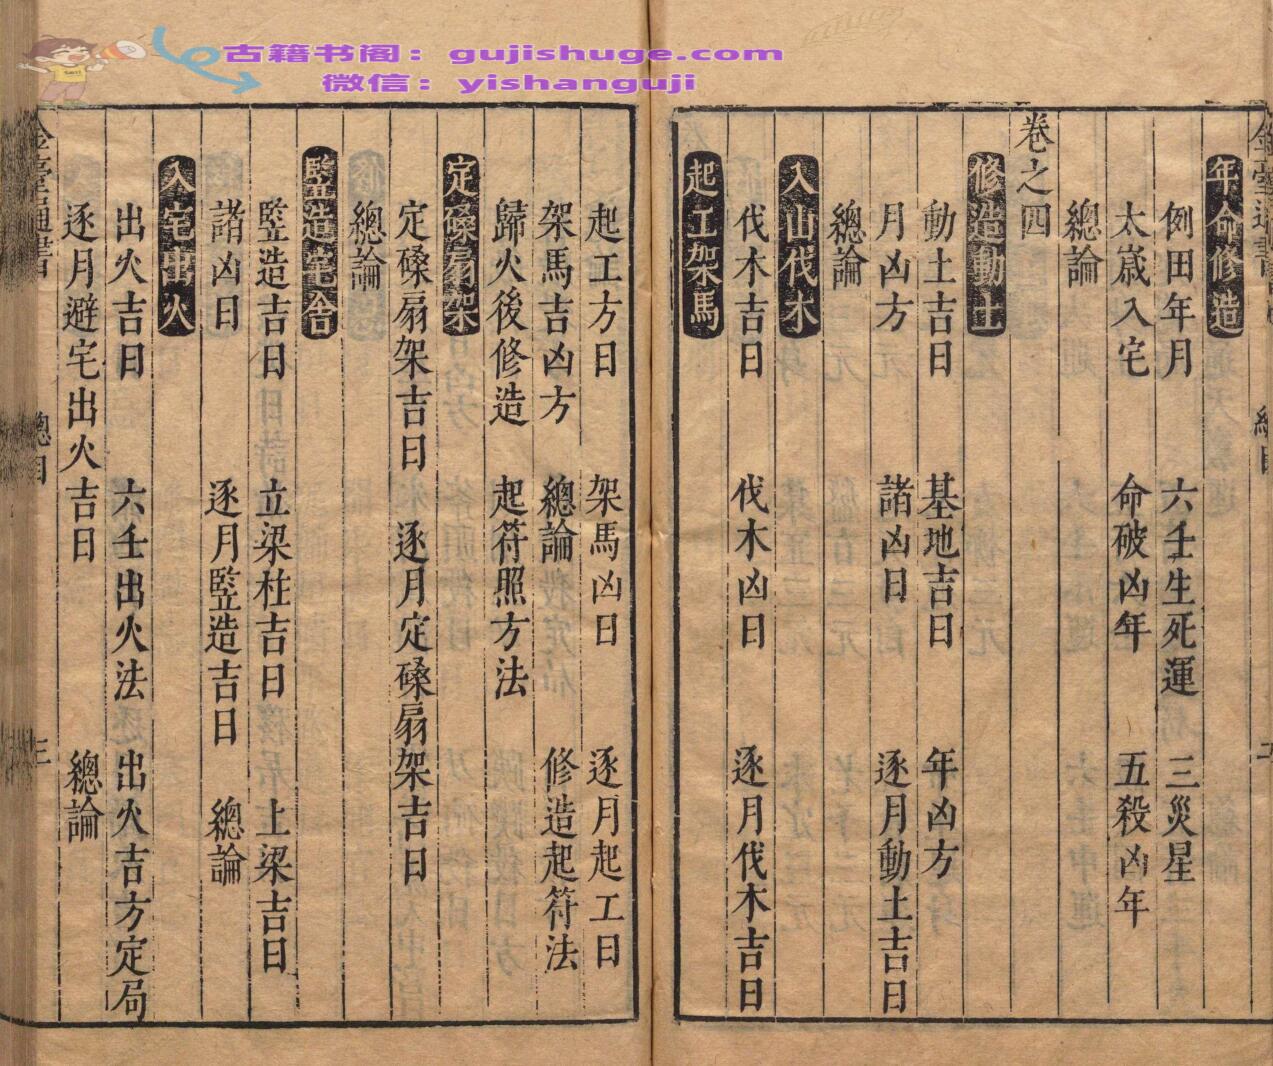 古籍书阁：gujishuge.com
微信：yishanguji
年命修造
例田年月 六壬生死運 三災星
太嵗入宅 命破凶年 五殺凶年
總論
卷之四
修造動土
動土吉日 基地吉日 年凶方
月凶方 諸凶日 逐月動土吉日
總論
入山伐木
伐木吉日 伐木凶日 逐月伐木吉日
起工架馬
起工方日 架馬凶日 逐月起工日
架馬吉凶方 總論 修造起符法
歸火後修造 起符照方法
定磉扇架
定磉扇架吉日 逐月定磉扇架吉日
總論
竪造宅舍
竪造吉日 立梁柱吉日 上梁吉日
諸凶日 逐月竪造吉日 總論
入宅出火
出火吉日 六壬出火法 出火吉方定局
逐月避宅出火吉日 總論
總目 三